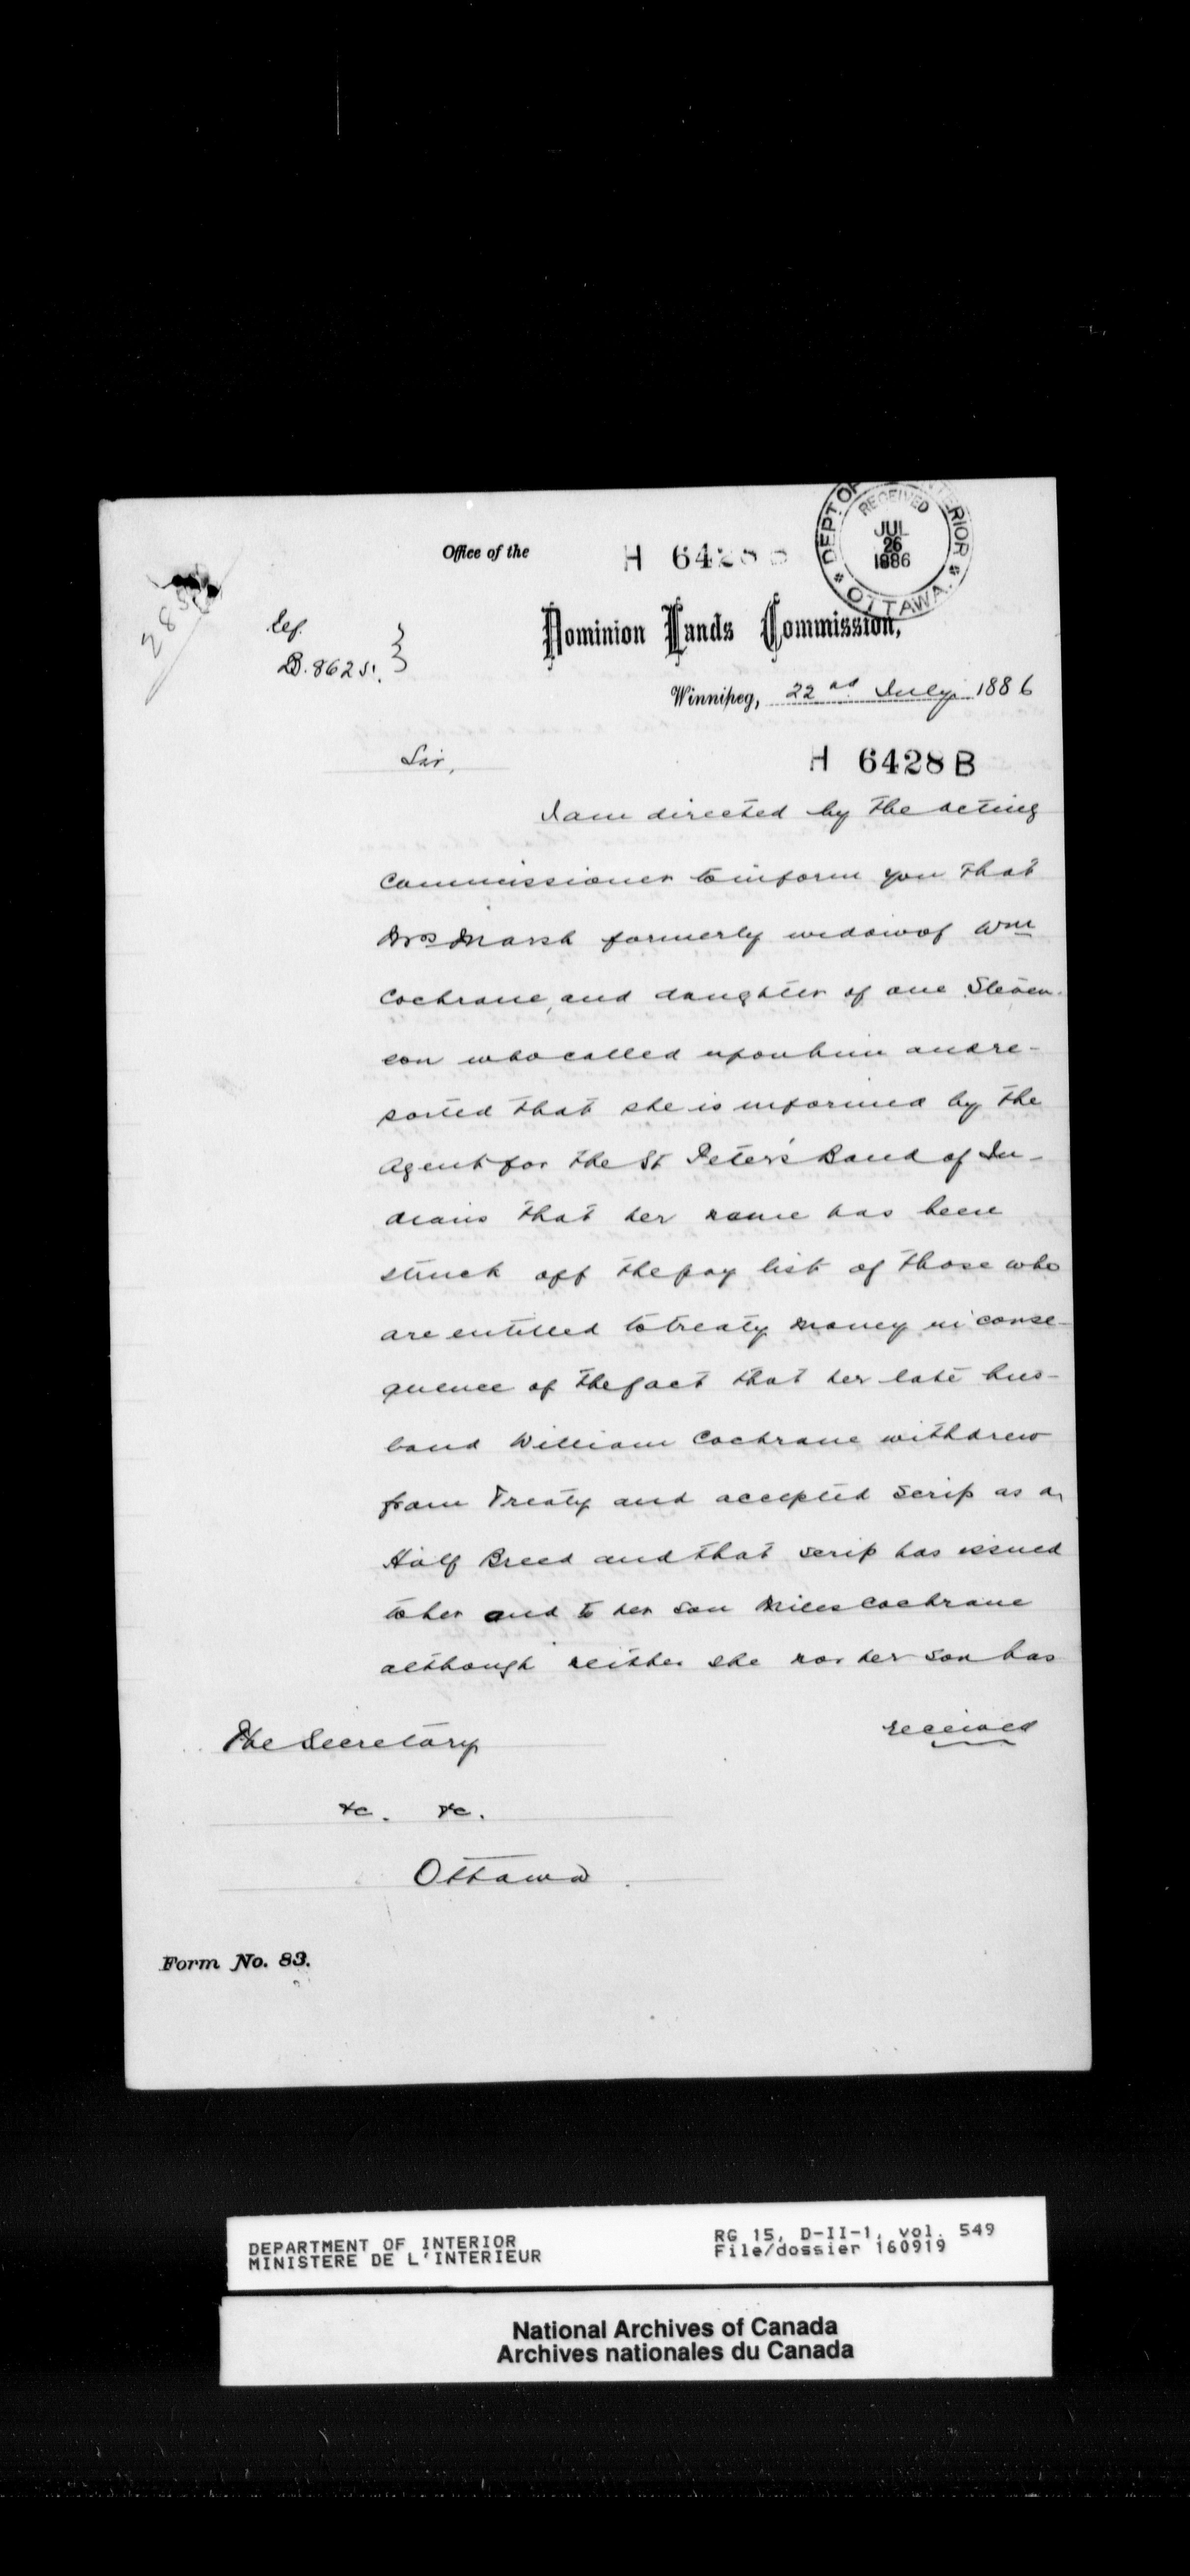 Office of the
H 6428 B
DEPT. OF INTERIOR
RECEIVED
JUL
26
1886
OTTAWA.
Ref.
B. 8625.
Dominion Lands Commission,
Winnipeg, 22nd July 1886
Sir,
H 6428 B
I am directed by the Acting
Commissioner to inform you that
Mrs Marsh formerly widow of Wm
Cochrane, and daughter of one Steven-
son who called upon him and re-
ported that she is informed by the
Agent for the St Peter's Band of In-
dians that her name has been
struck off the pay list of those who
are entitled to treaty money in conse-
quence of the fact that her late hus-
band William Cochrane withdrew
from Treaty and accepted Scrip as a
Half Breed and that scrip has issued
to her and to her son Miles Cochrane
although neither she nor her son has
received
The Secretary
&c. &c.
Ottawa.
Form No. 83.
DEPARTMENT OF INTERIOR
MINISTERE DE L'INTERIEUR
RG 15, D-II-1, vol. 549
File/dossier 160919
National Archives of Canada
Archives nationales du Canada